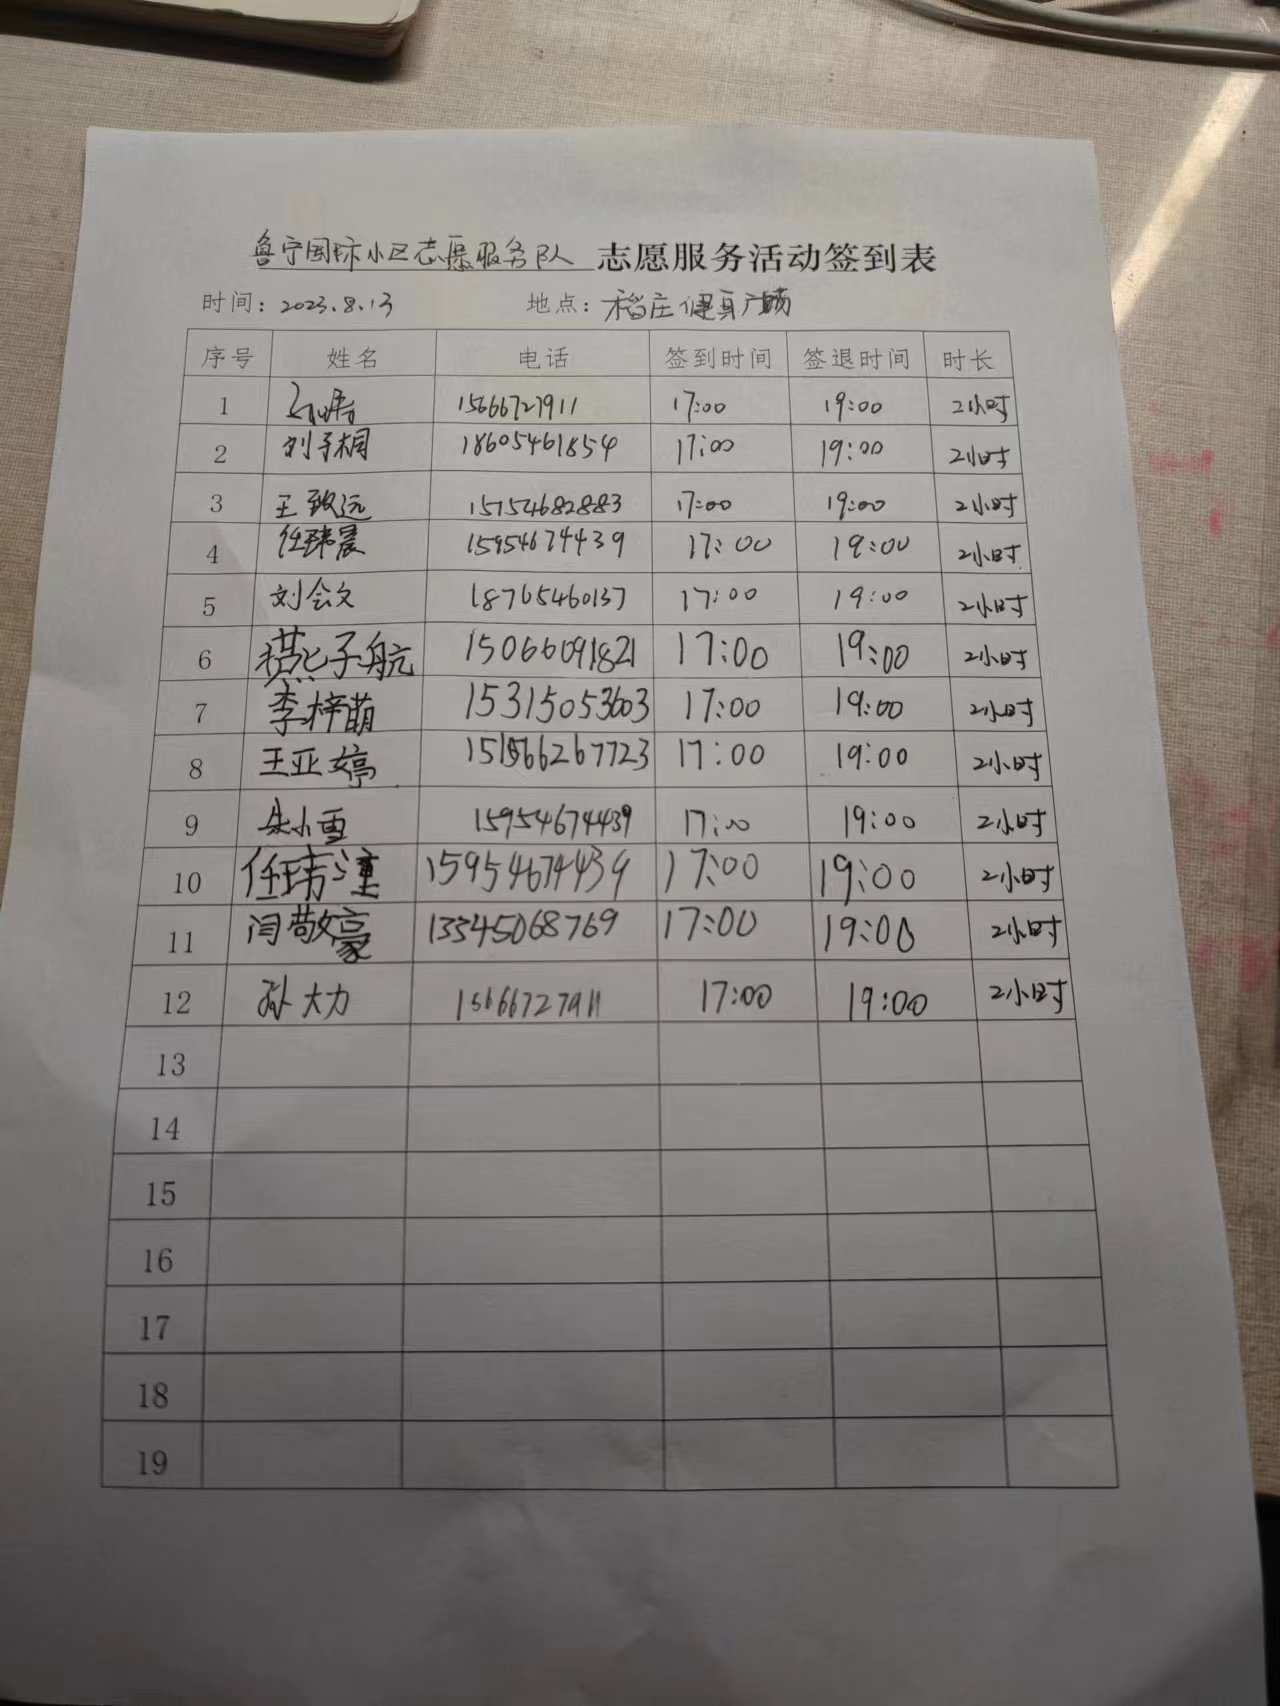 鲁宁国际小区志愿服务队 志愿服务活动签到表
时间：2023.8.13 地点：稻庄健身广场
序号 姓名 电话 签到时间 签退时间 时长
1 15666727911 17:00 19:00 2小时
2 刘子桐 18605461854 17:00 19:00 2小时
3 王致远 15754682883 17:00 19:00 2小时
4 任玮晨 15954674439 17:00 19:00 2小时
5 刘会文 18765460137 17:00 19:00 2小时
6 子航 15066091821 17:00 19:00 2小时
7 李梓萌 15315053603 17:00 19:00 2小时
8 王亚婷 17:00 19:00 2小时
9 朱小雪 15954674439 17:00 19:00 2小时
10 任玮潼 15954674439 17:00 19:00 2小时
11 闫敬豪 13345068769 17:00 19:00 2小时
12 孙大力 15666727911 17:00 19:00 2小时
13
14
15
16
17
18
19